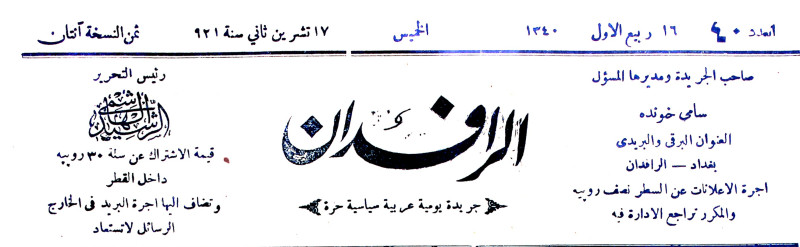 العدد ٤٠ ١٦ ربيع الاول ١٣٤٠ الخميس ١٧ تشرين ثاني سنة ٩٢١ ثمن النسخة آنتان
صاحب الجريدة ومديرها المسؤل
سامي خونده
العنوان البرقى والبريدى
بغداد — الرافدان
اجرة الاعلانات عن السطر نصف روپيه
والمكرر تراجع الادارة فيه
الرافدان
جريدة يومية عربية سياسية حرة
رئيس التحرير
الرشيد الهاشمي
قيمة الاشتراك عن سنة ٣٠ روپيه
داخل القطر
وتضاف اليها اجرة البريد فى الخارج
الرسائل لاتستعاد